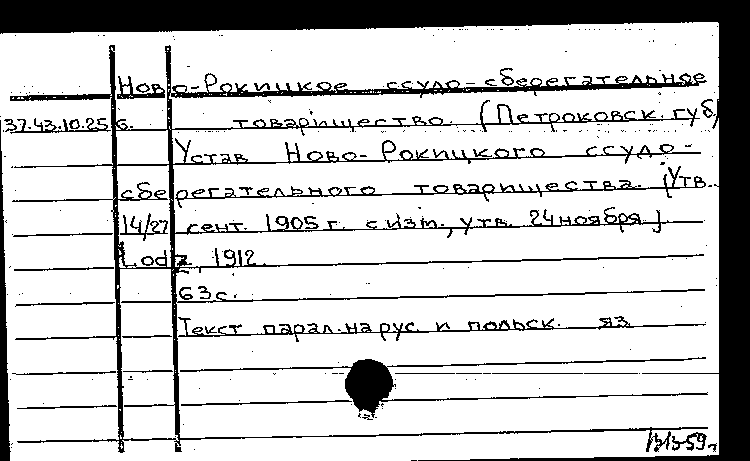 Ново-Рокицкое ссудо-сберегательное
37.43.10.25 б. товарищество. (Петроковск. губ)
Устав Ново-Рокицкого ссудо-
сберегательного товарищества. [Утв.
14/27 сент. 1905 г. с изм., утв. 24 ноября]
Lodz, 1912.
63 с.
Текст парал. на рус и польск. яз